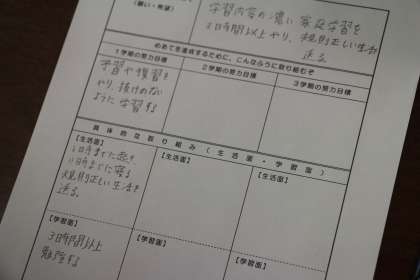 (願い・希望)
学習内容の濃い家庭学習を
3時間以上やり、規則正しい生活を
送る。
めあてを達成するために、こんなふうに取り組むぞ
1学期の努力目標
2学期の努力目標
3学期の努力目標
学習や復習を
やり抜けのない
ように学習する
具体的な取り組み(生活面・学習面)
【生活面】
【生活面】
【生活面】
時までに起き、
11時までに寝る
規則正しい生活を
送る。
【学習面】
【学習面】
【学習面】
3時間以上
勉強する